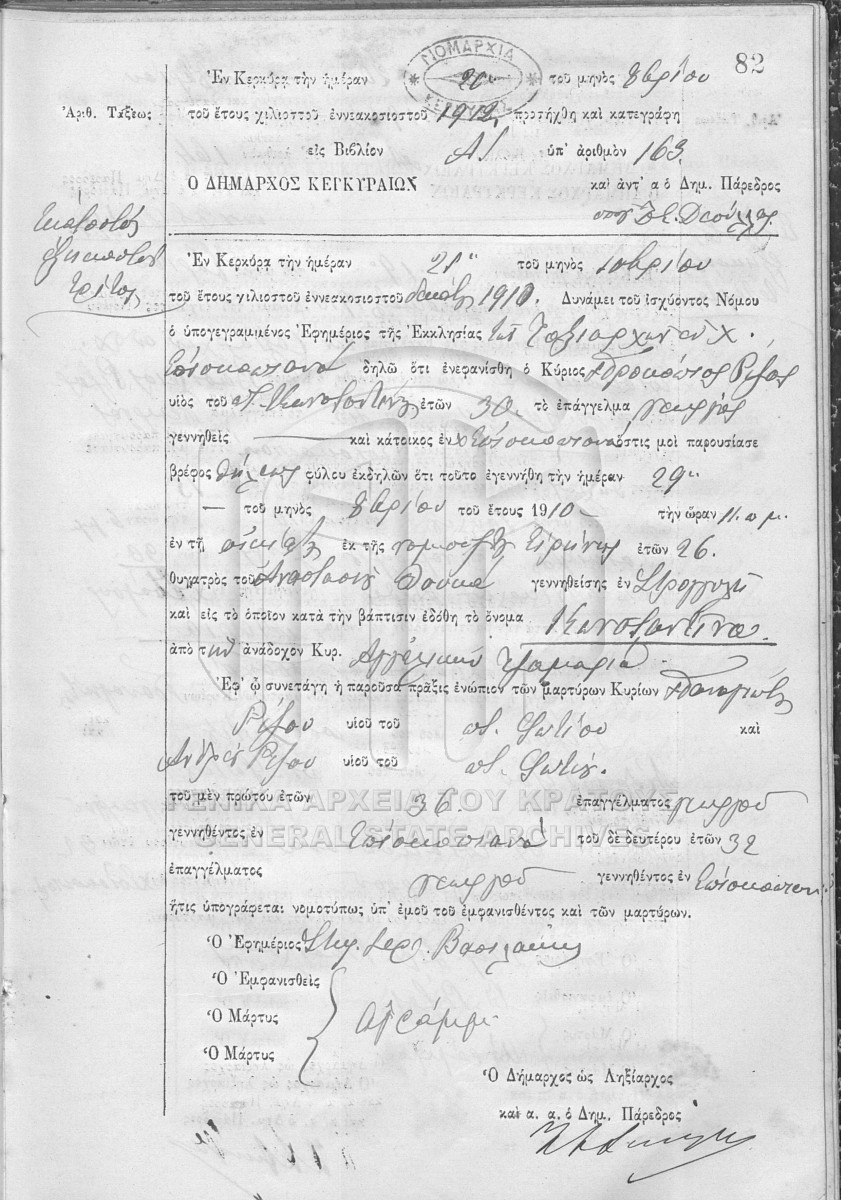 82
ΝΟΜΑΡΧΙΑ
ΚΕΡΚΥΡΑΣ
Ἐν Κερκύρᾳ τὴν ἡμέραν 20 τοῦ μηνὸς 8βρίου
Ἀριθ. Τάξεως
τοῦ ἔτους χιλιοστοῦ ἐννεακοσιοστοῦ 1912, προσήχθη καὶ κατεγράφη
εἰς Βιβλίον Α Ι. ὑπ' ἀριθμὸν 163.
Ὁ ΔΗΜΑΡΧΟΣ ΚΕΡΚΥΡΑΙΩΝ καὶ ἀντ' α ὁ Δημ. Πάρεδρος
Ἑκατοστός
ἑξηκοστός
τρίτος
Ἐν Κερκύρᾳ τὴν ἡμέραν 21η τοῦ μηνὸς 10βρίου
τοῦ ἔτους χιλιοστοῦ ἐννεακοσιοστοῦ δεκάτου 1910. Δυνάμει τοῦ ἰσχύοντος Νόμου
ὁ ὑπογεγραμμένος Ἐφημέριος τῆς Ἐκκλησίας τῶν Ταξιαρχῶν ἐν Χ.
Ἐπισκοπιανά δηλῶ ὅτι ἐνεφανίσθη ὁ Κύριος Προκόπιος Ρίζος
υἱὸς τοῦ Κωνσταντίνου ἐτῶν 30. τὸ ἐπάγγελμα γεωργός
γεννηθεὶς — καὶ κάτοικος ἐν Χ Ἐπισκοπιανά ὅστις μοὶ παρουσίασε
βρέφος θήλεος φύλου ἐκδηλῶν ὅτι τοῦτο ἐγεννήθη τὴν ἡμέραν 29η
— τοῦ μηνὸς 8βρίου τοῦ ἔτους 1910 — τὴν ὥραν 11. π μ.
ἐν τῇ οἰκίᾳ ἐκ τῆς νομίμου Εἰρήνης ἐτῶν 26.
θυγατρὸς τοῦ Ἀναστασίου Δουκᾶ γεννηθείσης ἐν Στρογγυλή
καὶ εἰς τὸ ὁποῖον κατὰ τὴν βάπτισιν ἐδόθη τὸ ὄνομα Κωνσταντίνα.
ἀπὸ τὴν ἀνάδοχον Κυρ. Ἀγγελικὴν Ψαμαριᾶ.
Ἐφ' ᾧ συνετάγη ἡ παροῦσα πρᾶξις ἐνώπιον τῶν μαρτύρων Κυρίων Παναγιώτη
Ρίζου υἱοῦ τοῦ π. Φωτίου καὶ
Ἀνδρέου Ρίζου υἱοῦ τοῦ π. Φωτίου.
τοῦ μὲν πρώτου ἐτῶν 36. ἐπαγγέλματος γεωργοῦ
ΓΕΝΙΚΑ ΑΡΧΕΙΑ ΤΟΥ ΚΡΑΤΟΥΣ
γεννηθέντος ἐν Ἐπισκοπιανά τοῦ δὲ δευτέρου ἐτῶν 32
GENERAL STATE ARCHIVES
ἐπαγγέλματος γεωργοῦ γεννηθέντος ἐν Ἐπισκοπιανά
ἥτις ὑπογράφεται νομοτύπως ὑπ' ἐμοῦ τοῦ ἐμφανισθέντος καὶ τῶν μαρτύρων.
Ὁ Ἐφημέριος Σπυρ. Ἱερ. Βασιλάκης
Ὁ Ἐμφανισθεὶς
Ὁ Μάρτυς ἀγράμματοι
Ὁ Μάρτυς
Ὁ Δήμαρχος ὡς Ληξίαρχος
καὶ α. α. ὁ Δημ. Πάρεδρος